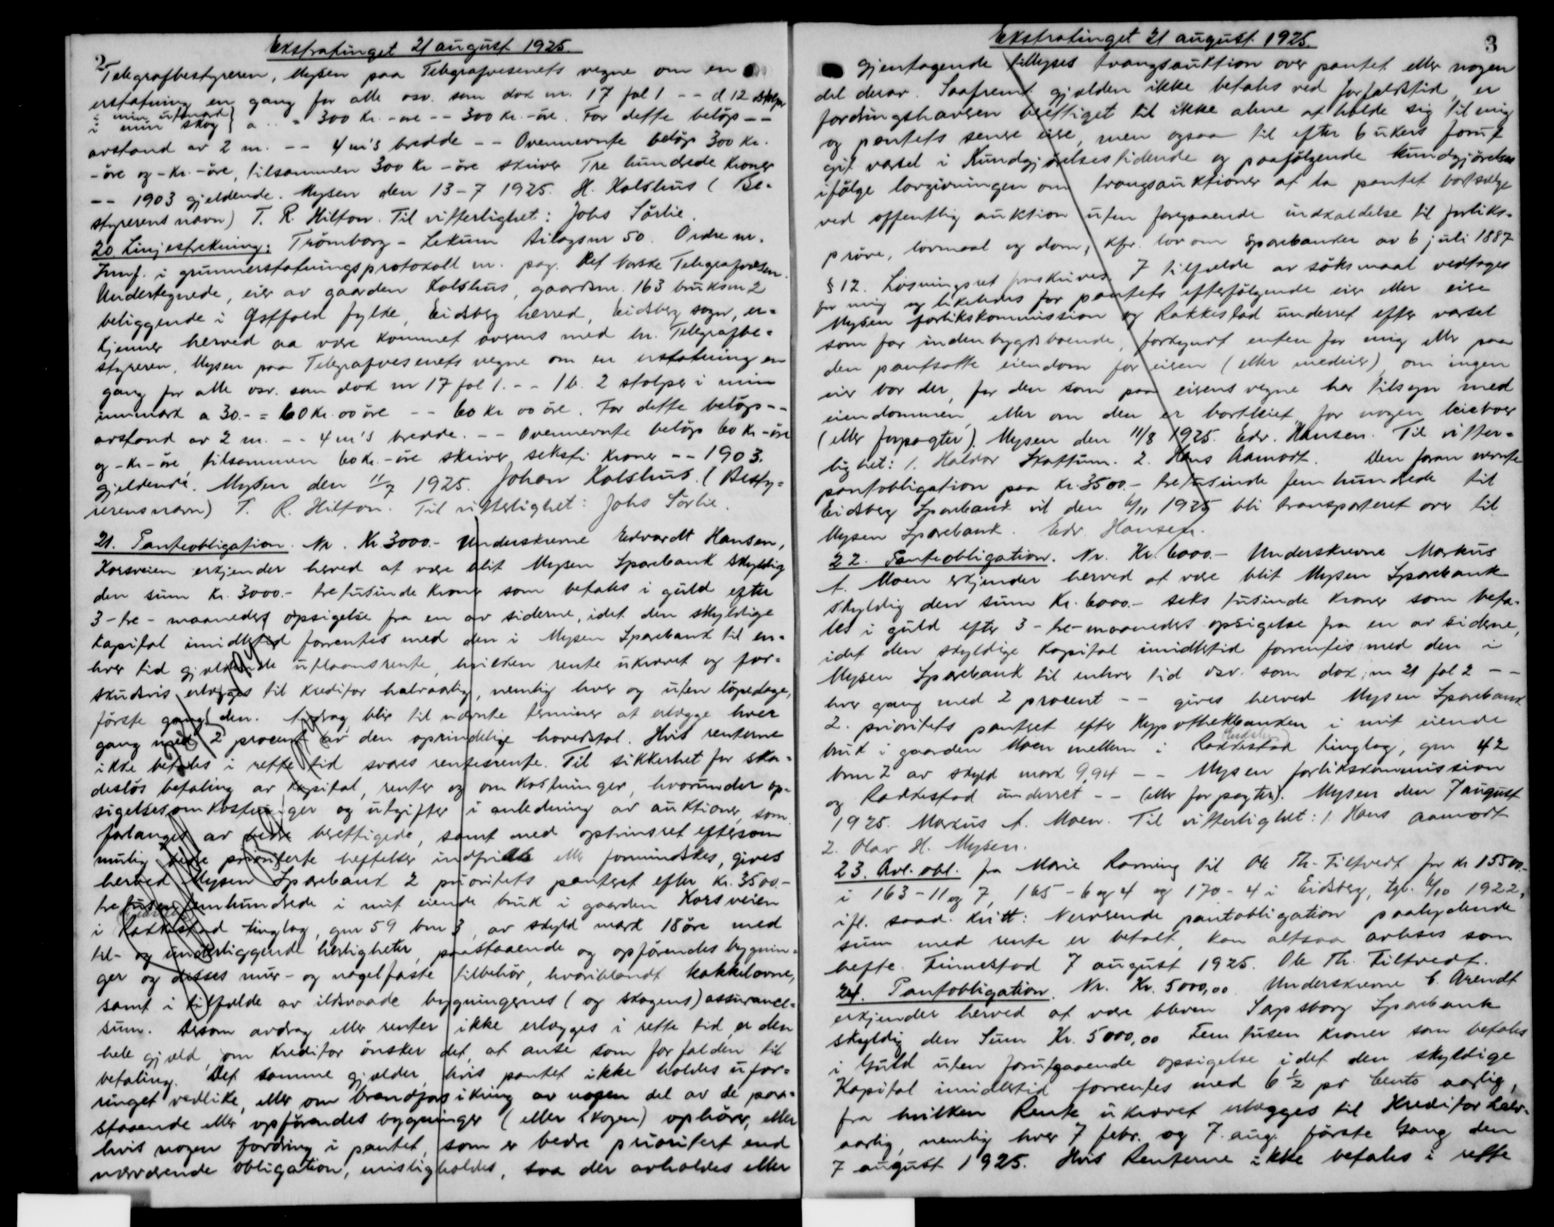 2
Ekstratinget 21 august 1925
Telegrafbestyreren, Mysen paa Telegrafvesenets vegne om en
erstatning en gang for alle osv. som dok nr. 17 fol 1 -- d 12 stolper
i min utmark
i min skog } a .. = 300 Kr. - øre -- 300 kr. - øre. For dette beløp --
avstand av 2 m. -- 4 m's bredde -- Ovennevnte beløp 300 Kr.
- øre og - kr. - øre, tilsammen 300 Kr - øre skriver Tre hundrede Kroner
-- 1903 gjeldende. Mysen den 13-7 1925. H. Kolshus ( Be-
styrerens navn) T. R. Hilton. Til vitterlighet: Johs Sørlie.
20 Linjestrekning: Trømborg - Lekum Bilagsnr 50. Ordre nr.
Jrnf. i grunnerstatningsprotokoll nr. pag. Det Norske Telegrafvesen.
Undertegnede, eier av gaarden Kolshus, gaardsnr. 163 bruksnr 2
beliggende i Østfold fylke, Eidsberg herred, Eidsberg sogn, er-
kjenner herved aa være kommet overens med hr. Telegrafbe-
styreren, Mysen paa Telegrafvesenets vegne om en erstatning en
gang for alle osv. som dok nr 17 fol 1. -- 1b. 2 stolper i min
innmark a 30.- = 60 Kr. 00 øre -- 60 kr 00 øre. For dette beløp --
avstand av 2 m. -- 4 m's bredde. -- Ovennevnte beløp 60 Kr - øre
og - kr - øre, tilsammen 60 kr. - øre skriver seksti kroner -- 1903.
gjeldende. Mysen den 11/7 1925. Johan Kolshus. ( Besty-
rerens navn) T. R. Hilton. Til vitterlighet: Johs Sørlie.
21. Panteobligation. Nr. Kr 3000.- Underskrevne Edvardt Hansen,
Korsveien erkjender herved at være blit Mysen Sparebank skyldig
den sum Kr. 3000.- tretusinde Kroner som betales i guld efter
3 - tre - maaneders opsigelse fra en av siderne, idet den skyldige
kapital imidlertid forrentes med den i Mysen Sparebank til en-
hver tid gjeldende utlaansrente, hvilken rente ukrævet og for-
skudsvis erlægges til kreditor halvaarlig, nemlig hver og uten løpedage,
første gang den. Avdrag blir til nævnte terminer at erlægge hver
gang med 2 procent av den oprindelige hovedstol. Hvis renterne
ikke betales i rette tid svares rentesrente. Til sikkerhet for ska-
desløs betaling av kapital, renter og om kostninger, hvorunder op-
sigelsesomkostninger og utgifter i anledning av auktioner, som
forlanges av bedre berettigede, samt med optrinsret eftersom
mulig bedre prioriterte heftelser indfries eller formindskes, gives
herved Mysen Sparebank 2 prioritets panteret efter Kr. 3500.-
tretusen femhundrede i mit eiende bruk i gaarden Korsveien
i Rakkestad tinglag, gnr 59 bnr 3, av skyld mark 18 øre med
til- og underliggende herligheter, paastaaende og opførendes bygnin-
ger og disses mur- og nagelfaste tilbehør, hvoriblandt kakkelovne,
samt i tilfælde av ildsvaade bygningernes (og skogens) assurance-
sum. Dersom avdrag eller renter ikke erlægges i rette tid, er den
hele gjæld, om kreditor ønsker det, at anse som forfalden til
betaling. Det samme gjælder, hvis pantet ikke holdes ufor-
ringet vedlike, eller om brandforsikring av nogen del av de paa-
staaende eller opførendes bygninger (eller skogen) ophører, eller
hvis nogen fordring i pantet, som er bedre prioritert end
nærværende obligation, misligholdes, saa der avholdes eller
3
Ekstratinget 21 august 1925
gjentagende tillyses tvangsauktion over pantet eller nogen
del derav. Saafremt gjælden ikke betales ved forfaldstid, er
fordringshaveren berettiget til ikke alene at holde sig til mig
og pantets senere eiere, men ogsaa til efter 6 ukers forut
git varsel i Kundgjørelsestidende og paafølgende kundgjørelse
ifølge lovgivningen om tvangsauktioner at la pantet bortsælge
ved offentlig auktion uten foregaaende indkaldelse til forliks-
prøve, lovmaal og dom, kfr. lov om Sparebanker av 6 juli 1887
§ 12. Løsningsret fraskrives. I tilfælde av søksmaal vedtages
for mig og likeledes for pantets efterfølgende eier eller eiere
Mysen forlikskommission og Rakkestad underret efter varsel
som for indenbygdsboende, forkyndt enten for mig eller paa
den pantsatte eiendom for eieren (eller medeier), om ingen
eier bor der, for den som paa eierens vegne har tilsyn med
eiendommen, eller om den er bortleiet for nogen leieboer
(eller forpagter). Mysen den 11/8 1925. Edv. Hansen. Til vitter-
lighet: 1. Haldor Skattum. 2. Hans Aamodt. Den foran nævnte
pantobligation paa Kr. 3500.- tretusinde femhundrede til
Eidsberg Sparebank vil den 6/11 1925 bli transporteret over til
Mysen Sparebank. Edv Hansen.
22. Panteobligation. Nr. Kr. 6000.- Underskrevne Markus
A. Moen erkjender herved at være blit Mysen Sparebank
skyldig den sum Kr. 6000.- seks tusinde kroner som beta-
les i guld efter 3 - tre - maaneders opsigelse fra en av siderne,
idet den skyldige kapital imidlertid forrentes med den i
Mysen Sparebank til enhver tid osv. som dok. nr 21 fol 2 --
hver gang med 2 procent -- gives herved Mysen Sparebank
2. prioritets panteret efter Hypothekbanken i mit eiende
bruk i gaarden Moen mellem i Rakkestad tinglag, gnr 42
bnr 2 av skyld mark 9,94 -- Mysen forlikskommission
og Rakkestad underret -- (eller forpagter). Mysen den 7 august
1925. Markus A. Moen. Til vitterlighet: 1. Hans Aamodt
2. Olav H. Mysen.
23. Avl. obl. fra Marie Ramning til Ole Th. Tiltvedt for kr 15500.-
i 163-11 og 7, 165-6 og 4 og 170-4 i Eidsberg, tgl. 6/10 1922,
ifl. saad. kvitt: Nærværende pantobligation paalydende
sum med rente er betalt, kan altsaa avlæses som
hefte. Finnestad 7 august 1925. Ole Th. Tiltvedt.
24. Pantobligation. Nr. Kr. 5000,00 Underskrevne E Arendt
erkjender herved at være bleven Sarpsborg Sparebank
skyldig den Sum Kr. 5000,00 Fem tusen kroner som betales
i Guld uten forutgaaende opsigelse idet den skyldige
Kapital imidlertid forrentes med 6 ½ pr Cento aarlig,
fra hvilken Rente ukrævet erlægges til Kreditor halv-
aarlig, nemlig hver 7 febr. og 7. aug. første Gang den
7 august 1925. Hvis Renterne ikke betales i rette